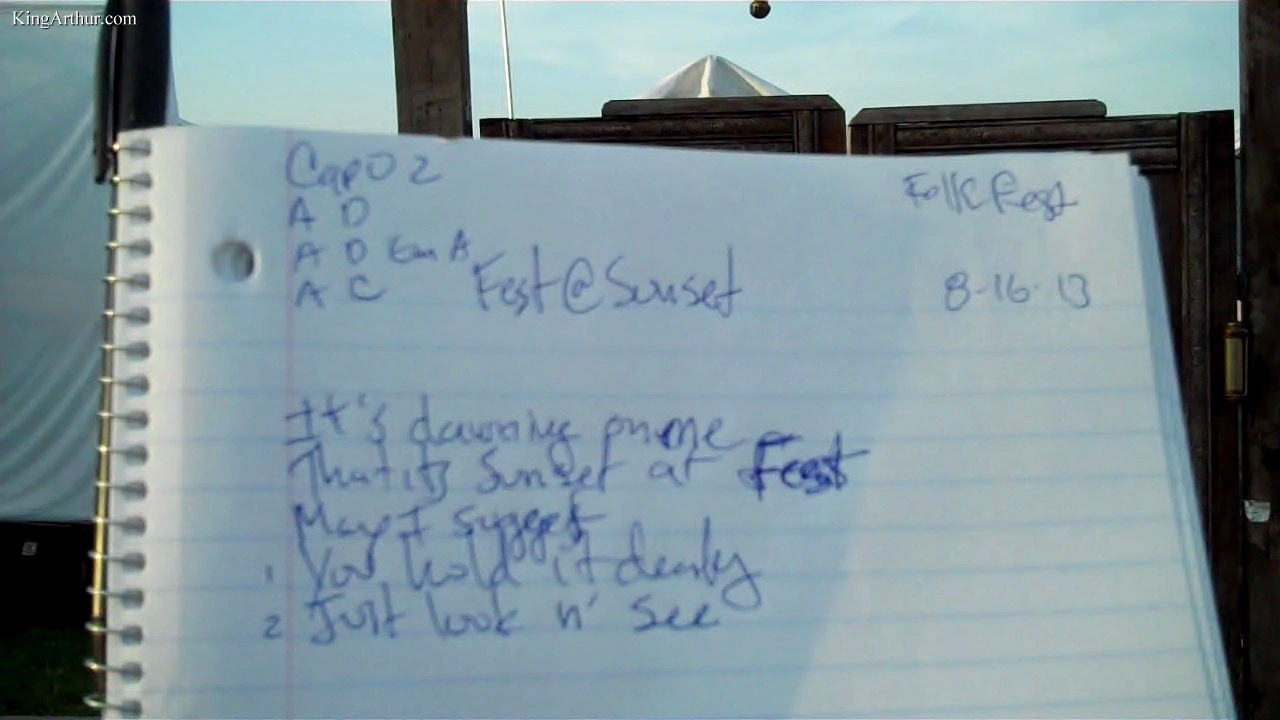 KingArthur.com
Capo 2
Folk Fest
A D
A D Em A
A C
Fest @ Sunset
8-16-13
It's dawning on me
That it's Sunset at Fest
May I suggest
1 You hold it dearly
2 Just look n' see